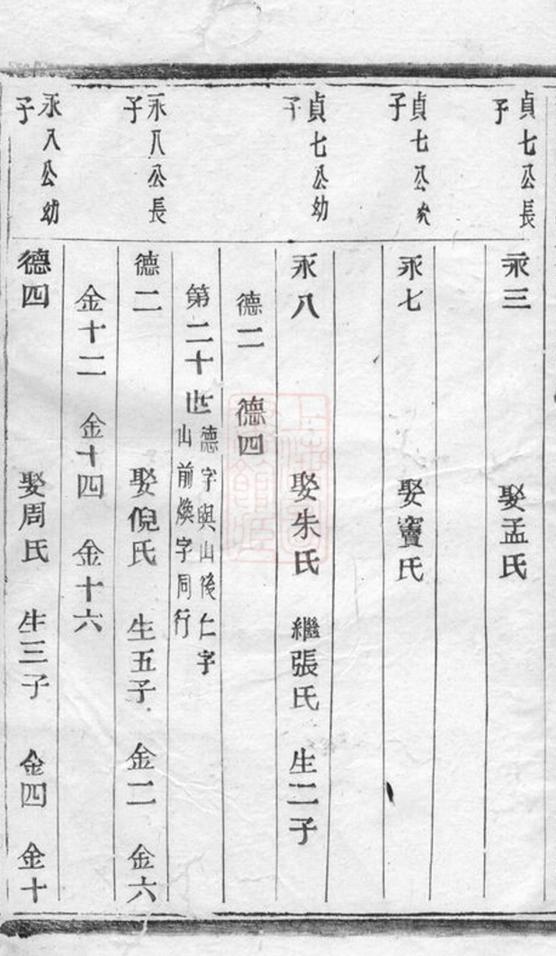 貞七公長子
永三 娶孟氏
貞七公次子
永七 娶竇氏
貞七公幼子
永八 娶朱氏 繼張氏 生二子
德二 德四
第二十世
德字與山後仁字
山前煥字同行
永八公長子
德二 娶倪氏 生五子 金二 金六
金十二 金十四 金十六
永八公幼子
德四 娶周氏 生三子 金四 金十